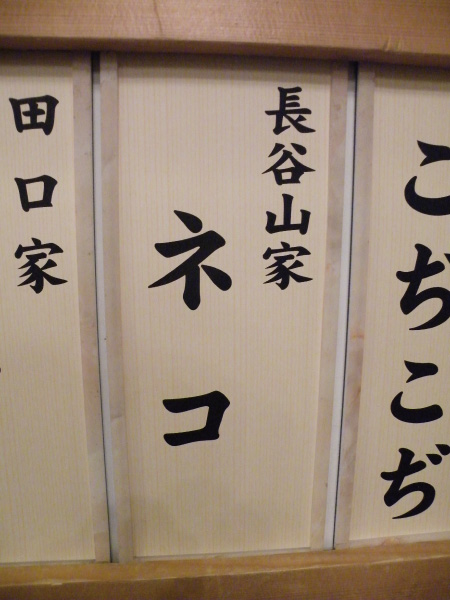 こぢこぢ
長谷山家
ネコ
田口家